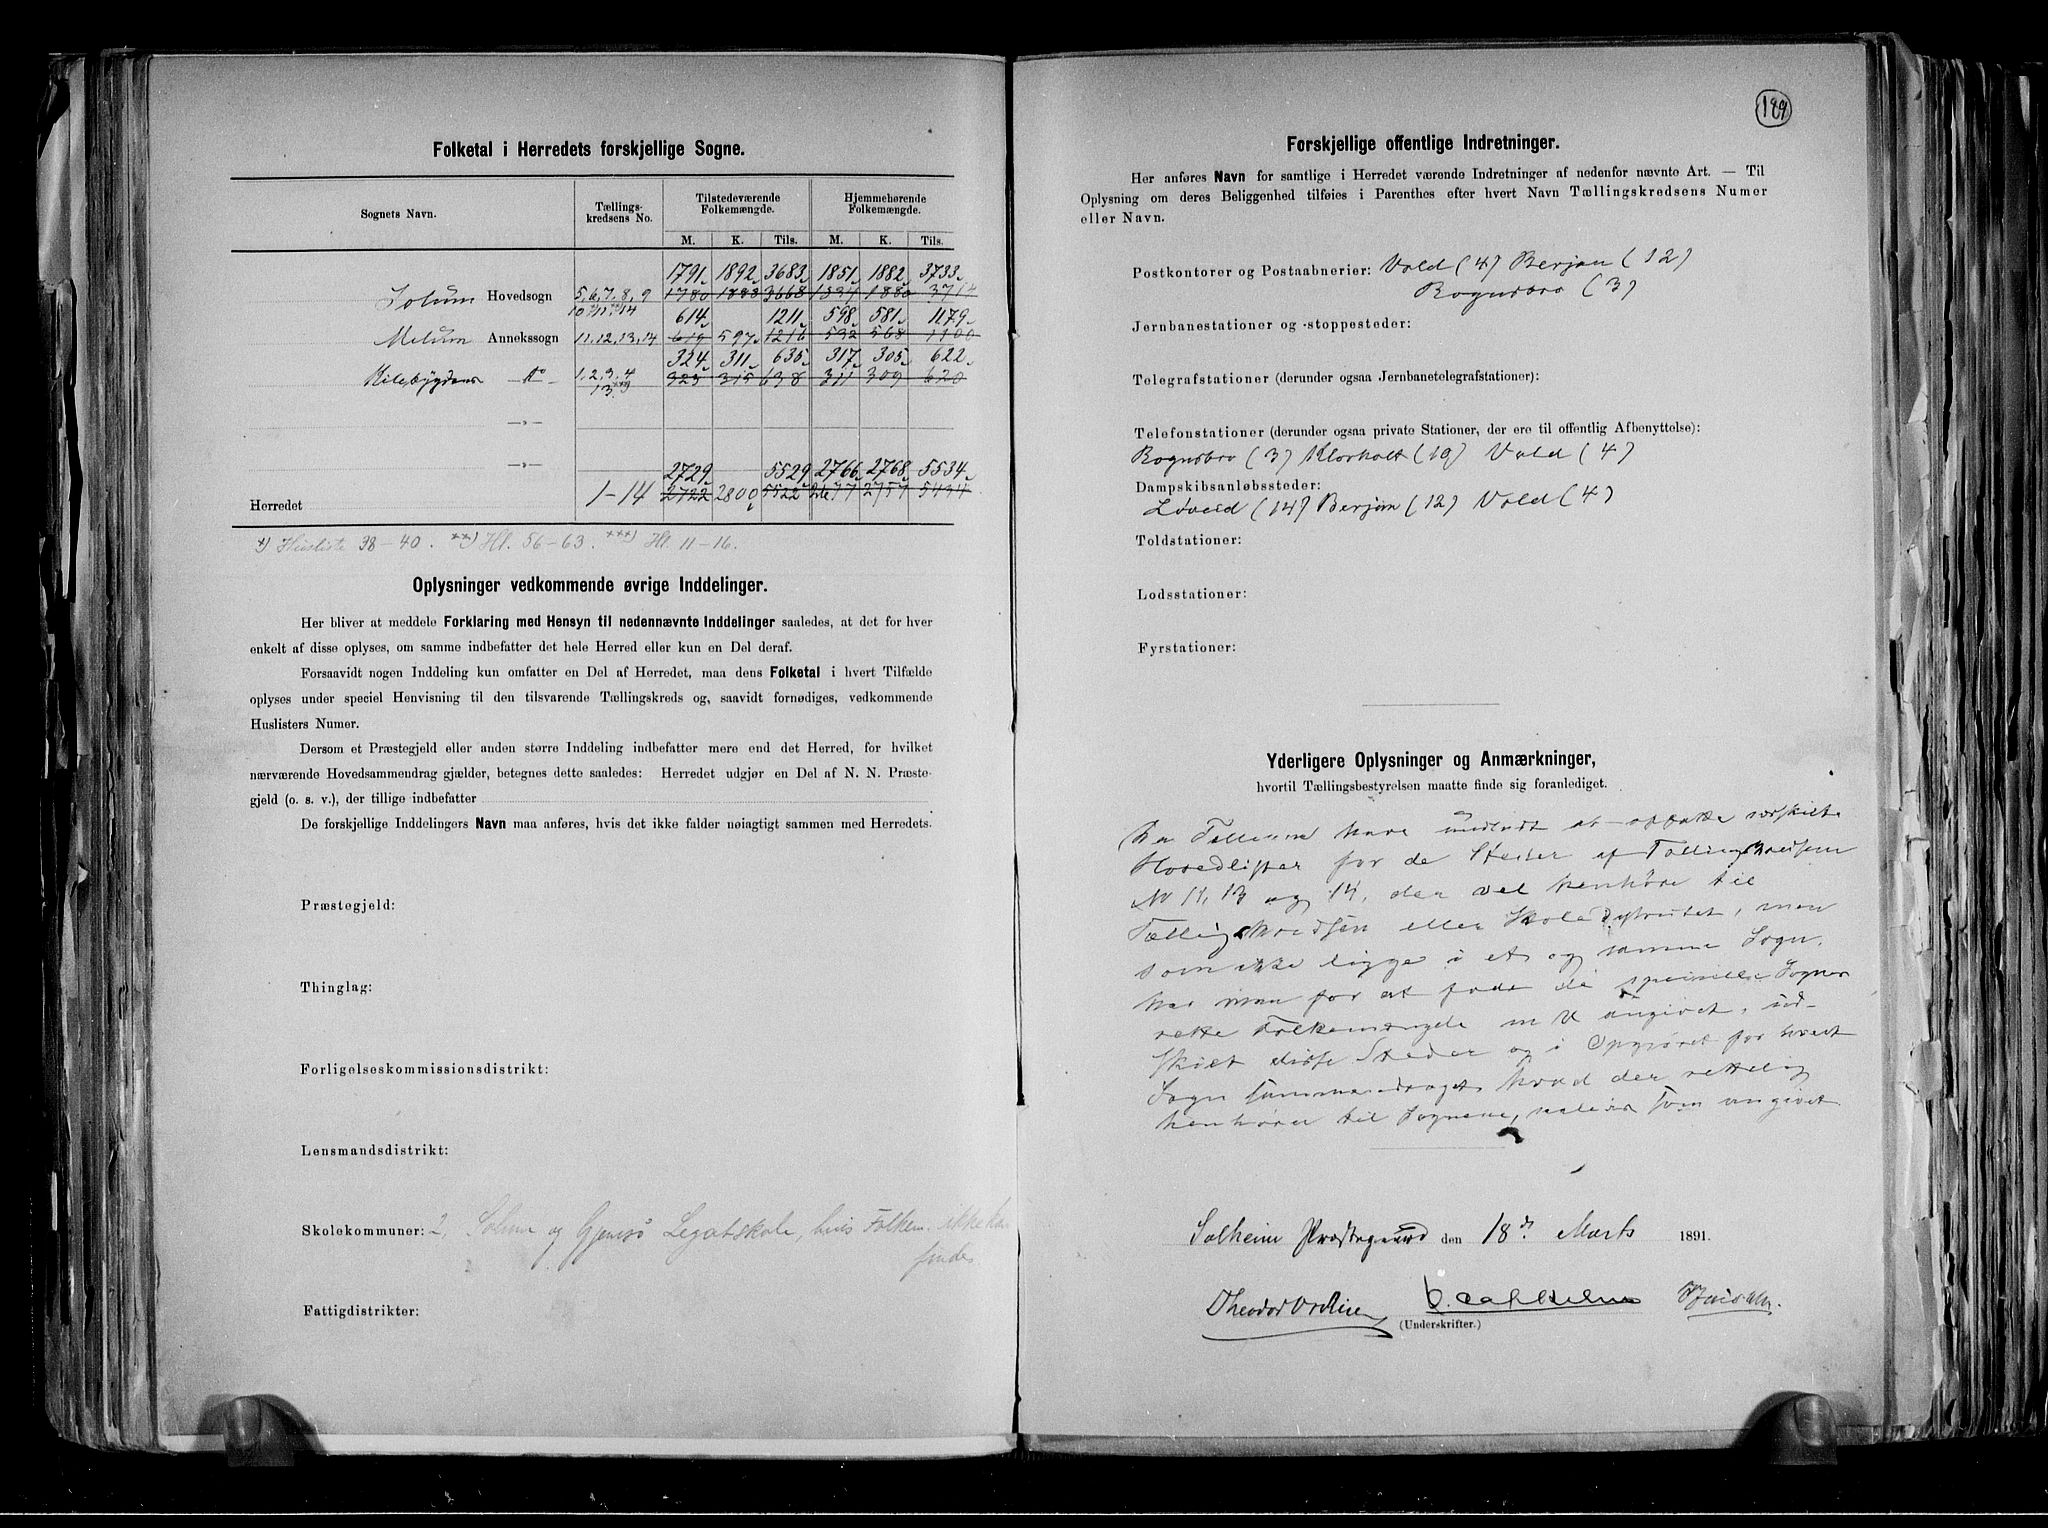 Folketal i Herredets forskjellige Sogne.
Sognets Navn. Tællings-kredsens No. Tilstedeværende Folkemængde. Hjemmehørende Folkemængde.
M. K. Tils. M. K. Tils.
1791 1892 3683 1851 1882 3733
Solum Hovedsogn 5, 6, 7, 8, 9 1780 1888 3668 1834 1880 3714
10 *)11 **)14 614 1211 598 581 1179
Melum Annekssogn 11, 12, 13, 14 619 597 1216 532 568 1100
324 311 635 317 305 622
Kilebygdens 1, 2, 3, 4 323 315 638 311 309 620
13 ***)
—„—
—„—
2729 5529 2766 2768 5534
Herredet 1–14 2722 2800 5522 2677 2757 5434
*) Husliste 38–40. **) Hl. 56–63. ***) Hl. 11–16.
Oplysninger vedkommende øvrige Inddelinger.
Her bliver at meddele Forklaring med Hensyn til nedennævnte Inddelinger saaledes, at det for hver
enkelt af disse oplyses, om samme indbefatter det hele Herred eller kun en Del deraf.
Forsaavidt nogen Inddeling kun omfatter en Del af Herredet, maa dens Folketal i hvert Tilfælde
oplyses under speciel Henvisning til den tilsvarende Tællingskreds og, saavidt fornødiges, vedkommende
Huslisters Numer.
Dersom et Præstegjeld eller anden større Inddeling indbefatter mere end det Herred, for hvilket
nærværende Hovedsammendrag gjælder, betegnes dette saaledes: Herredet udgjør en Del af N. N. Præste-
gjeld (o. s. v.), der tillige indbefatter
De forskjellige Inddelingers Navn maa anføres, hvis det ikke falder nøiagtigt sammen med Herredets.
Præstegjeld:
Thinglag:
Forligelseskommissionsdistrikt:
Lensmandsdistrikt:
Skolekommuner: 2, Solum og Gjemsø Legatskole, hvis Folkem. ikke kan
findes.
Fattigdistrikter:
189
Forskjellige offentlige Indretninger.
Her anføres Navn for samtlige i Herredet værende Indretninger af nedenfor nævnte Art. — Til
Oplysning om deres Beliggenhed tilføies i Parenthes efter hvert Navn Tællingskredsens Numer
eller Navn.
Postkontorer og Postaabnerier: Vold (4) Berjan (12)
Rognsbro (3)
Jernbanestationer og -stoppesteder:
Telegrafstationer (derunder ogsaa Jernbanetelegrafstationer):
Telefonstationer (derunder ogsaa private Stationer, der ere til offentlig Afbenyttelse):
Rognsbro (3) Klovholt (10) Vold (4)
Dampskibsanløbssteder:
Løveid (14) Berjan (12) Vold (4)
Toldstationer:
Lodsstationer:
Fyrstationer:
Yderligere Oplysninger og Anmærkninger,
hvortil Tællingsbestyrelsen maatte finde sig foranlediget.
Da Tællerne have undladt at opsætte særskilte
Hovedlister for de Steder af Tællingskredsene
No 11, 13 og 14, der vel henhøre til
Tællingskredsen eller Skoledistriktet, men
som ikke ligge i et og samme Sogn,
har man for at faa de specielle Sognes
rette Folkemængde angivet, ud-
skilt disse Steder og i Opgjøret for hvert
Sogn sammendraget hvad der rettelig
henhører til Sognene, saaledes som angivet
Solheim Præstegaard den 18de Marts 1891.
(Underskrifter.)